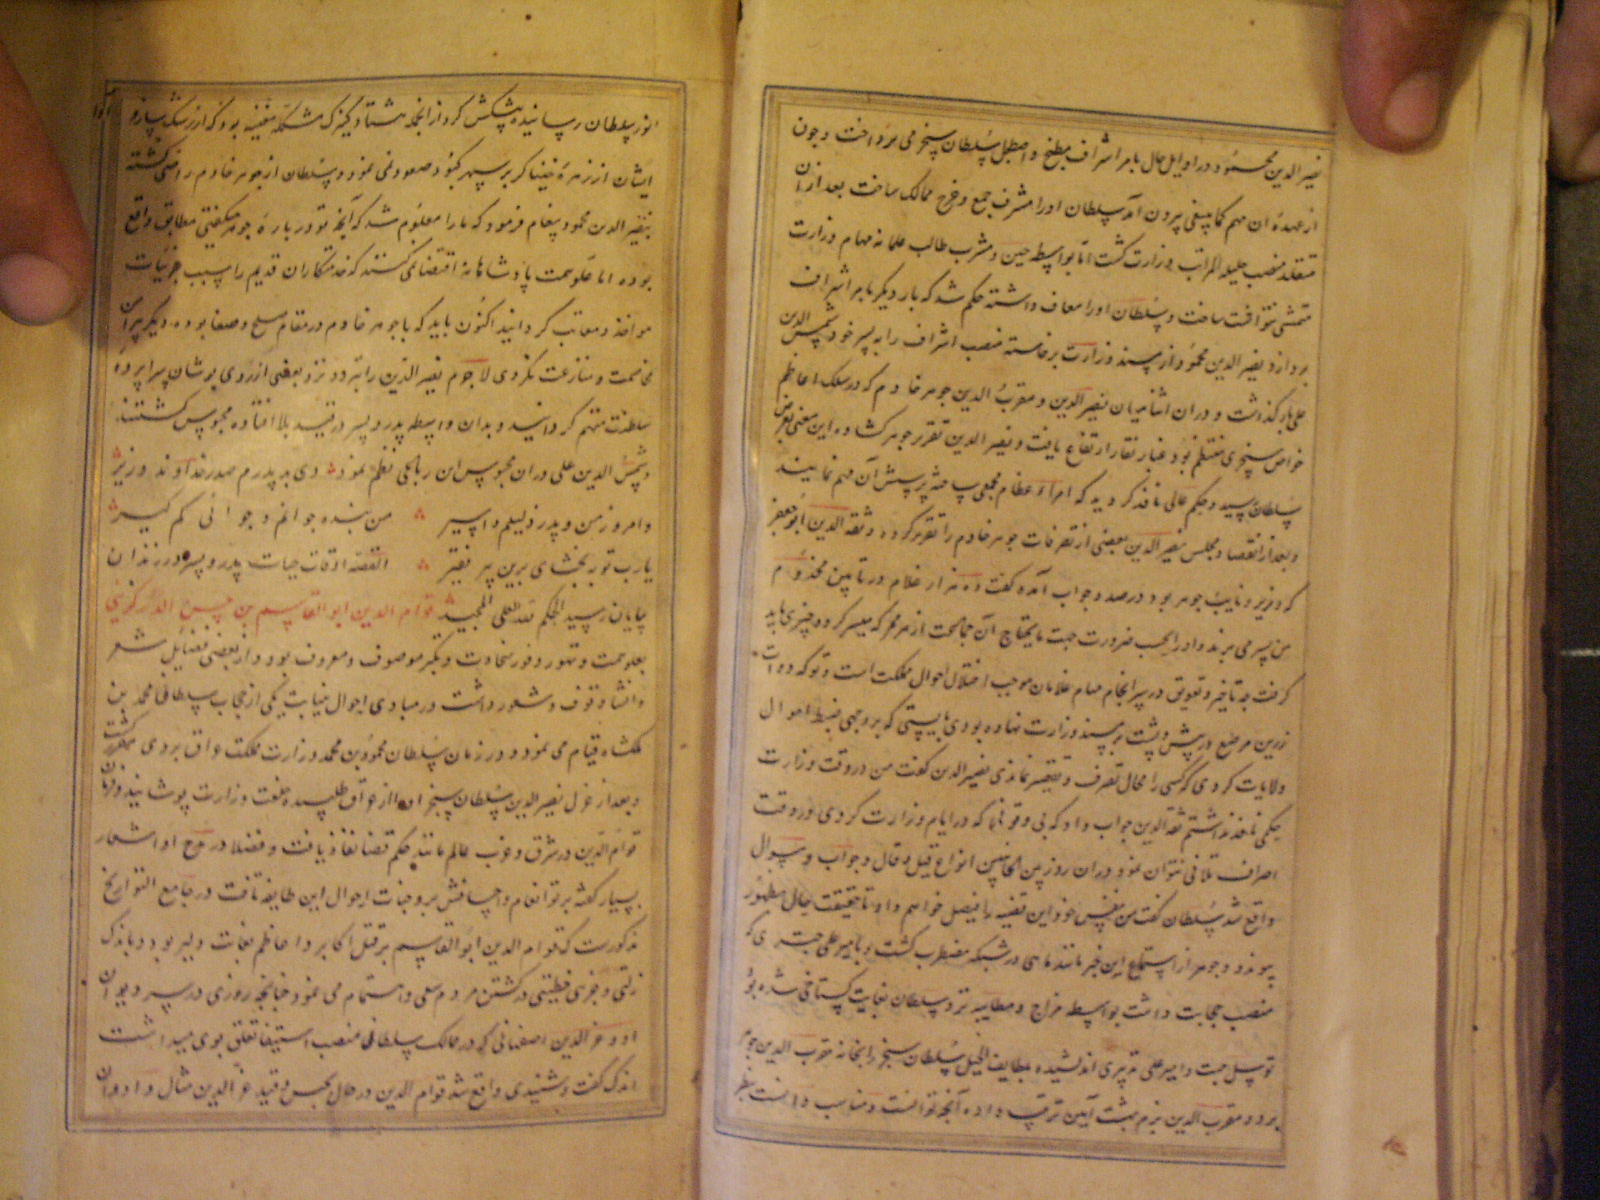 نصیر الدین محمود در اوایل حال بامر اشراف مطبخ و اصطبل سلطان سنجر می پرداخت و چون
از عهدهٔ آن مهم کماینبغی بیرون آمد سلطان او را مشرف جمع و خرج ممالک ساخت بعد از آن
متقلد منصب جلیل المراتب وزارت گشت اما بواسطه حین و مشرب طالب علمانه مهام وزارت
متمشی نتوانست ساخت و سلطان او را معاف داشته حکم شد که بار دیگر بامر اشراف
پردازد نصیر الدین محمود از مسند وزارت برخاسته منصب اشراف را به پسر خود شمس الدین
علی باز گذاشت و در آن اثنا میان نصیر الدین و مقرب الدین جوهر خادم که در سلک اعاظم
خواص سنجری منتظم بود غبار نقار ارتفاع یافت و نصیر الدین تقریر جوهر کشاده این معنی بعرض
سلطان رسید و حکم عالی نافذ گردید که امراء عظام مجمعی ساخته پرسش آن مهم نمایند
و بعد از انعقاد مجلس نصیر الدین بعضی از تصرفات جوهر خادم را تقریر کرده ثقه الدین ابو جعفر
که وزیر و نایب جوهر بود در صدد جواب آمده گفت ده هزار غلام در تابین مخدوم
من بسر می برند و او را بحسب ضرورت جهت مایحتاج آن جماعت از هر ممر که میسر گردد چیزی باید
گرفت چه تاخیر و تعویق در سرانجام مهام غلامان موجب اختلال احوال مملکت است و تو که دوات
زرین مرصع در پیش و پشت بر مسند وزارت نهاده بودی بایستی که بر وجهی ضبط اموال
ولایات کردی که کسی را مجال تصرف و تقصیر نماندی نصیر الدین گفت من در وقت وزارت
حکمی نافذ نداشتم ثقه الدین جواب داد که بی وقوفی که در ایام وزارت کردی در وقت
اشراف تلافی نتوان نمود و در آن روز بین الجانبین انواع قیل و قال و جواب و سوال
واقع شد سلطان گفت من بنفس خود این قضیه را فیصل خواهم داد تا حقیقت حال بظهور
پیوندد و جوهر از استماع این خبر مانند ماهی در شبکه مضطرب گشت و بامیر علی چتری که
منصب حجابت داشت بواسطه مزاح و مطایبه نزد سلطان بغایت گستاخ شده بود
توسل جست و امیر علی تدبیری اندیشیده بلطایف الحیل سلطان سنجر را بخانه مقرب الدین جوهر
برد و مقرب الدین بزم بهشت آیین ترتیب داده آنچه توانست و مناسب دانست بنظر
انور سلطان رسانیده پیشکش کرد از انجمله هشتاد کنیزک مغنیه بود که از رشک
ایشان زهرهٔ خنیاگر بر سپهر کبود صعود نمی نمود و سلطان از جوهر خادم راضی گشته
بنصیر الدین محمود پیغام فرمود که ما را معلوم شد که آنچه تو در بارهٔ جوهر میگفتی مطابق واقع
بوده اما علو همت پادشاهانه اقتضا نمی کند که خدمتکاران قدیم را بسبب جزئیات
مواخذ و معاتب گردانید اکنون باید که با جوهر خادم در مقام صلح و صفا بوده دیگر پیرامن
مخاصمت و منازعت نگردی لاجرم نصیر الدین را بتردد نزد بعضی از روی پوشان سراپرده
سلطنت متهم گردانید و بدان واسطه پدر و پسر در قید بلا افتاده محبوس گشتند
و شمس الدین علی در آن محبوس این رباعی نظم نمود دی بد پدرم صدر خداوند و زیر
و امروز من و پدر ذلیلم و اسیر من بنده جوانم و جوانی کم گیر
یا رب تو ببخشای برین پیر فقیر القصه اوقات حیات پدر و پسر در زندان
بپایان رسید الحکم لله العلی المجید قوام الدین ابو القاسم بن حسن الدرگزینی
بعلو همت و تهور و وفور سخاوت و تکبر موصوف و معروف بود و از بعضی فضایل شعر
و انشا وقوف و شعور داشت در مبادی احوال بنیابت یکی از حجاب سلطان محمد بن
ملکشاه قیام می نمود و در زمان سلطان محمود بن محمد وزارت مملکت عراق بر وی مقرر گشت
و بعد از عزل نصیر الدین سلطان سنجر او را از عراق طلبیده خلعت وزارت پوشانید و فرمان
قوام الدین در شرق و غرب عالم مانند حکم قضا نفاذ یافت و فضلا در مدح او اشعار
بسیار گفته پرتو انعام و احسانش بر وجنات احوال این طایفه تافت در جامع التواریخ
مذکورست که قوام الدین ابو القاسم بر قتل اکابر و اعاظم بغایت دلیر بود و باندک
زلتی و جزئی خطیئتی در کشتن مردم سعی و اهتمام می نمود چنانچه روزی در سر دیوان
او و عز الدین اصفهانی که در ممالک سلطانی منصب استیفا تعلق بوی میداشت
اندک گفت و شنیدی واقع شد قوام الدین در حال بحبس و قید عز الدین مثال داد و آن